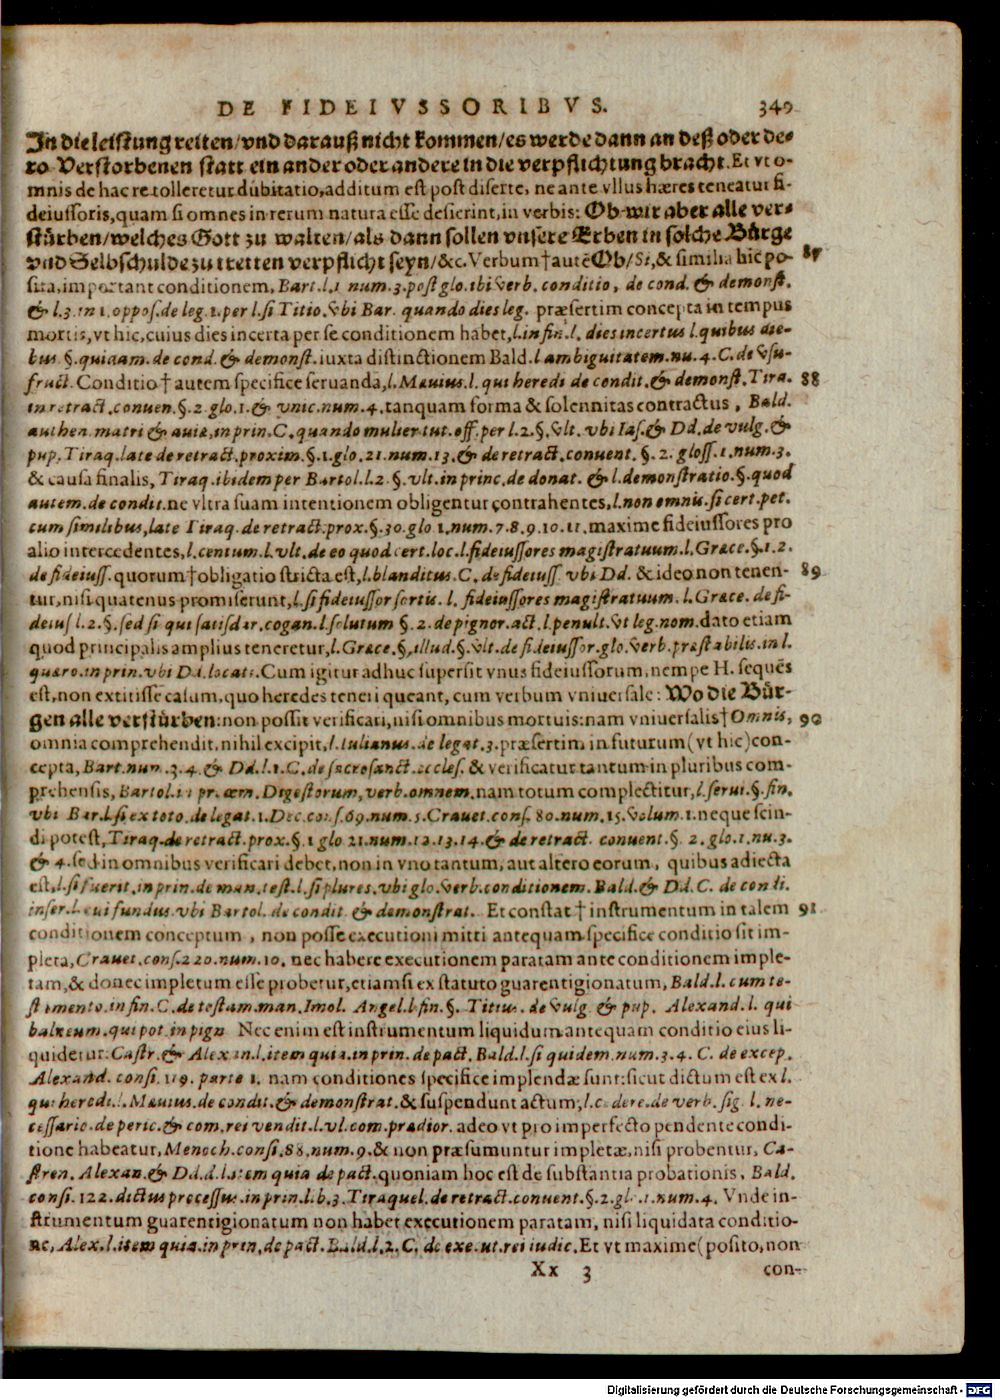 DE FIDEIVSSORIBVS. 349
In die leistung reiten/vnd darauß nicht kommen/es werde dann an deß oder de-
ro Verstorbenen statt ein ander oder andere in die verpflichtung bracht. Et vt o-
mnis de hac re tolleretur dubitatio, additum est post diserte, ne ante vllus hæres teneatur fi-
deiussoris, quam si omnes in rerum natura esse desierint, in verbis: Ob wir aber alle ver-
stürben/welches Gott zu walten/als dann sollen vnsere Erben in solche Bürge
vnd Selbschulde zu tretten verpflicht seyn/&c. Verbum † autē Ob/Si, & similia hic po- 87
sita, important conditionem, Bart. l. 1 num. 3. post glo. ibi verb. conditio, de cond. & demonst.
& l. 3. in 1. oppos. de leg. 1. per l. si Titio. vbi Bar. quando dies leg. præsertim concepta in tempus
mortis, vt hic, cuius dies incerta per se conditionem habet, l. in fin. l. dies incertus l. quibus die-
bus §. quidam. de cond. & demonst. iuxta distinctionem Bald. l ambiguitatem. nu. 4. C. de vsu-
fruct. Conditio † autem specifice seruanda, l. Mæuius. l. qui heredi de condit. & demonst. Tira. 88
in retract. conuen. §. 2 glo. 1. & vnic. num. 4. tanquam forma & solennitas contractus, Bald.
authen. matri & auiæ. in prin. C. quando mulier tut. off. per l. 2. §. vlt. vbi Ias. & Dd. de vulg. &
pup. Tiraq. late de retract. proxim. §. 1. glo. 21. num. 13. & de retract. conuent. §. 2. gloss. 1. num. 3.
& causa finalis, Tiraq. ibidem per Bartol. l. 2. §. vlt. in princ. de donat. & l. demonstratio. §. quod
autem. de condit. ne vltra suam intentionem obligentur contrahentes, l. non omnis. si cert. pet.
cum similibus, late Tiraq. de retract. prox. §. 30. glo 1. num. 7. 8. 9. 10. 11. maxime fideiussores pro
alio intercedentes, l. centum. l. vlt. de eo quod cert. loc. l. fideiussores magistratuum. l. Græce. §. 1. 2.
de fideiuss. quorum † obligatio stricta est, l. blanditus. C. de fideiuss. vbi Dd. & ideo non tenen- 89
tur, nisi quatenus promiserunt, l. si fideiussor sortis. l. fideiussores magistratuum. l. Græce. de fi-
deius l. 2. §. sed si qui satisdar. cogan. l. solutum §. 2. de pignor. act. l. penult. vt leg. nom. dato etiam
quod principalis amplius teneretur, l. Græce. §. illud. §. vlt. de fideiussor. glo. verb. præstabilis. in l.
quæro. in prin. vbi Dd. locati. Cum igitur adhuc supersit vnus fideiussorum, nempe H. sequēs
est, non extitisse casum, quo heredes teneri queant, cum verbum vniuersale: Wo die Bür-
gen alle verstürben: non possit verificari, nisi omnibus mortuis: nam vniuersalis † Omnis, 90
omnia comprehendit, nihil excipit, l. Iulianus. de legat. 3. præsertim in futurum (vt hic) con-
cepta, Bart. num. 3. 4. & Dd. l. 1. C. de sacrosanct. eccles. & verificatur tantum in pluribus com-
prehensis, Bartol. in prœm. Digestorum, verb. omnem. nam totum complectitur, l. serui. §. fin.
vbi Bar. l. si ex toto. de legat. 1. Dec. cons. 69. num. 5. Crauet. cons. 80. num. 15. volum. 1. neque scin-
di potest, Tiraq. de retract. prox. §. 1 glo 21. num. 12. 13. 14. & de retract. conuent. §. 2. glo. 1. nu. 3.
& 4. sed in omnibus verificari debet, non in vno tantum, aut altero eorum, quibus adiecta
est, l. si fuerit. in prin. de man. test. l. si plures. vbi glo. verb. conditionem. Bald. & Dd. C. de condi.
inser. l. cui fundus. vbi Bartol. de condit. & demonstrat. Et constat † instrumentum in talem 91
conditionem conceptum, non posse executioni mitti antequam specifice conditio sit im-
pleta, Crauet. cons. 220. num. 10. nec habere executionem paratam ante conditionem imple-
tam, & donec impletum esse probetur, etiamsi ex statuto guarentigionatum, Bald. l. cum te-
stamento. in fin. C. de testam. man. Imol. Angel. l. fin. §. Titius. de vulg. & pup. Alexand. l. qui
balneum. qui pot. in pign. Nec enim est instrumentum liquidum antequam conditio eius li-
quidetur: Castr. & Alex in l. item quia. in prin. de pact. Bald. l. si quidem. num. 3. 4. C. de excep.
Alexand. consi. 119. parte 1. nam conditiones specifice implendæ sunt: sicut dictum est ex l.
qui heredi. l. Mæuius. de condit. & demonstrat. & suspendunt actum, l. cedere. de verb. sig. l. ne-
cessario. de peric. & com. rei vendit. l. vl. com. prædior. adeo vt pro imperfecto pendente condi-
tione habeatur, Menoch. consi. 88. num. 9. & non præsumuntur impletæ, nisi probentur, Ca-
stren. Alexan. & Dd. d. l. item quia de pact. quoniam hoc est de substantia probationis, Bald.
consi. 122. dictus processus. in prin. lib. 3. Tiraquel. de retract. conuent. §. 2. glo. 1. num. 4. Vnde in-
strumentum guarentigionatum non habet executionem paratam, nisi liquidata conditio-
ne, Alex. l. item quia. in prin. de pact. Bald. l. 2. C. de exe. ut. rei iudic. Et vt maxime (posito, non
Xx 3 con-
Digitalisierung gefördert durch die Deutsche Forschungsgemeinschaft - DFG